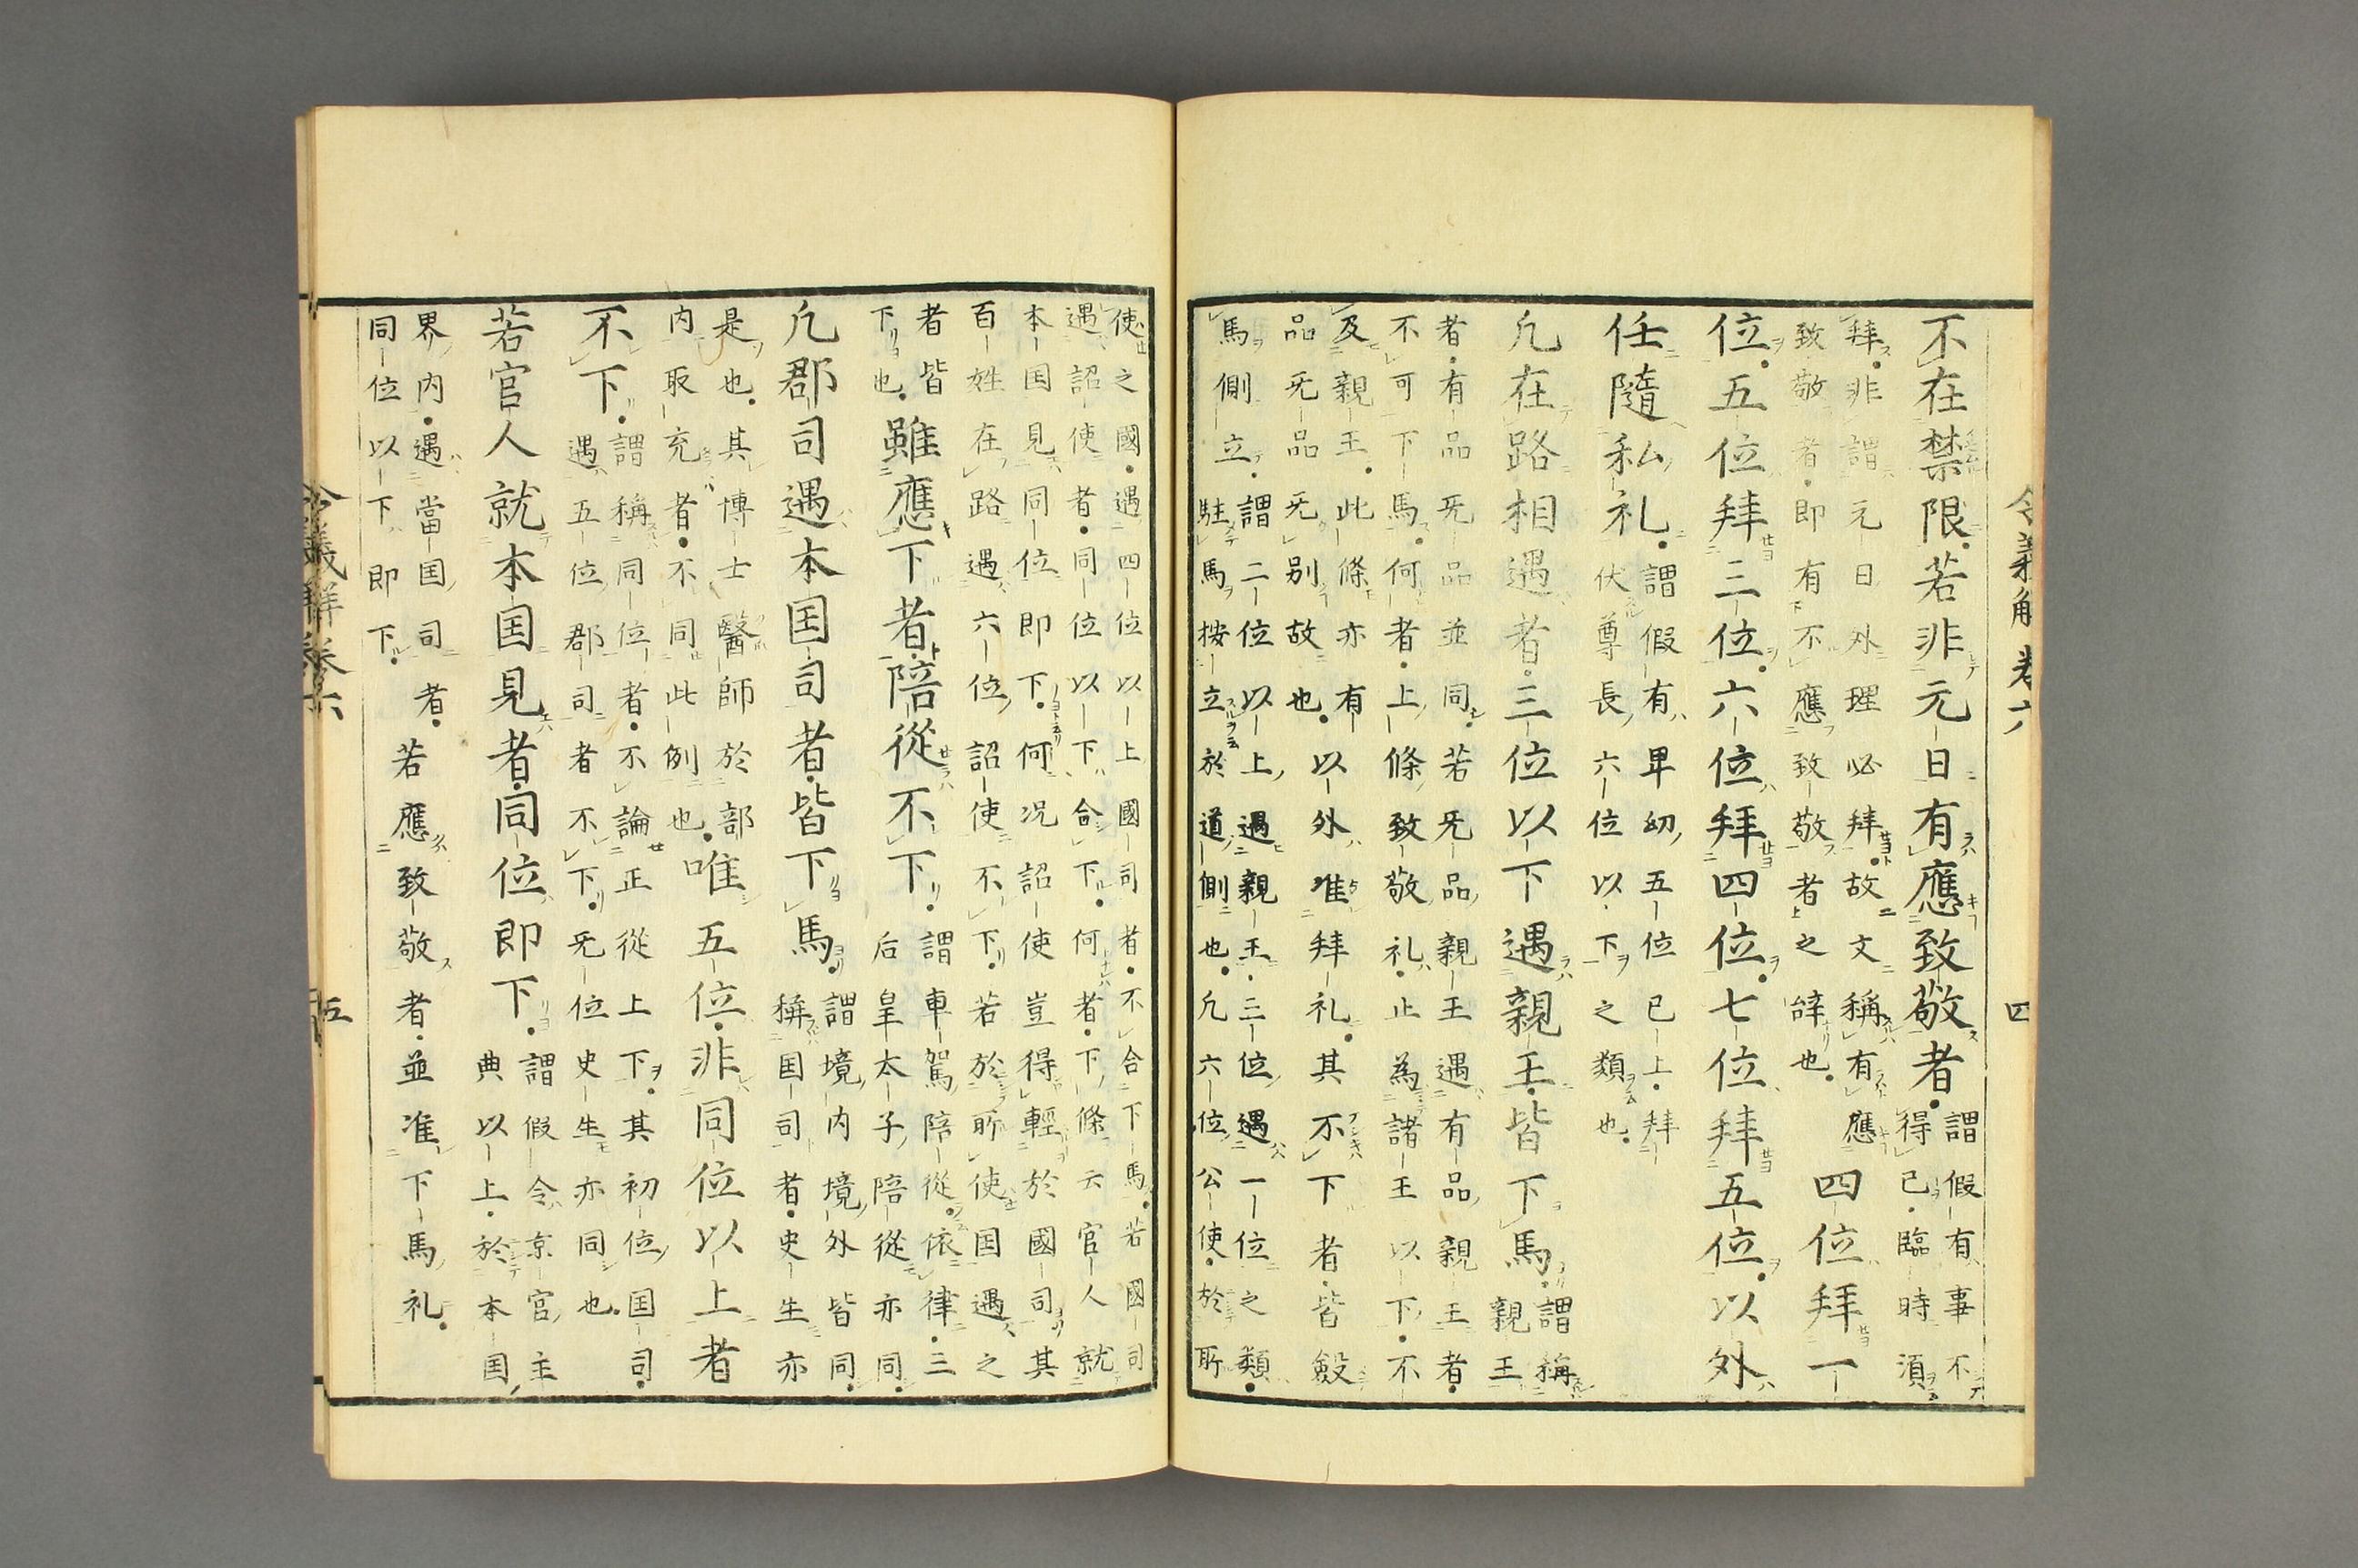 令義解卷六
四
不在禁限若非元日有應致敬者
謂假有事不
得已臨時須
拜非謂元日外理必拜故文稱有應
致敬者即有不應致敬者之辞也
四位拜一
位五位拜三位六位拜四位七位拜五位以外
任隨私礼
謂假有卑幼五位已上拜
伏尊長六位以下之類也
凢在路相遇者三位以下遇親王皆下馬
謂稱
親王
者有品旡品並同若旡品親王遇有品親王者
不可下馬何者上條致敬礼止為諸王以下不
及親王此條亦有
品旡品旡别故也
以外准拜礼其不下者皆斂
馬側立
謂二位以上遇親王三位遇一位之類
駐馬按立於道側也凢六位公使於所
使之國遇四位以上國司者不合下馬若國司
遇詔使者同位以下合下何者下條云官人就
本囯見同位即下何况詔使豈得輕於國司其
百姓在路遇六位詔使不下若於所使囯遇之
者皆
下也
雖應下者陪從不下
謂車駕陪從依律三
后皇太子陪從亦同
凢郡司遇本囯司者皆下馬
謂境内境外皆同
稱囯司者史生亦
是也其博士醫師於部
内取充者不同此例也
唯五位非同位以上者
不下
謂稱同位者不論正從上下其初位囯司
遇五位郡司者不下旡位史生亦同也
若官人就本囯見者同位即下
謂假令京官主
典以上於本囯
界内遇當囯司者
同位以下即下
若應致敬者並准下馬礼
令義解卷六
五